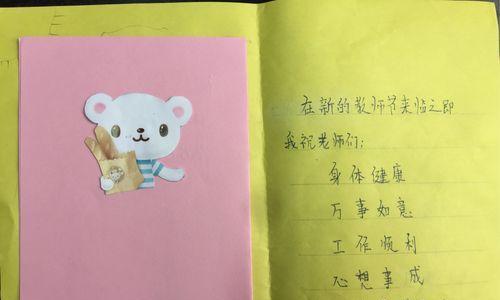 在新的教师节来临之即
我祝老师们:
身体健康
万事如意
工作顺利
心想事成